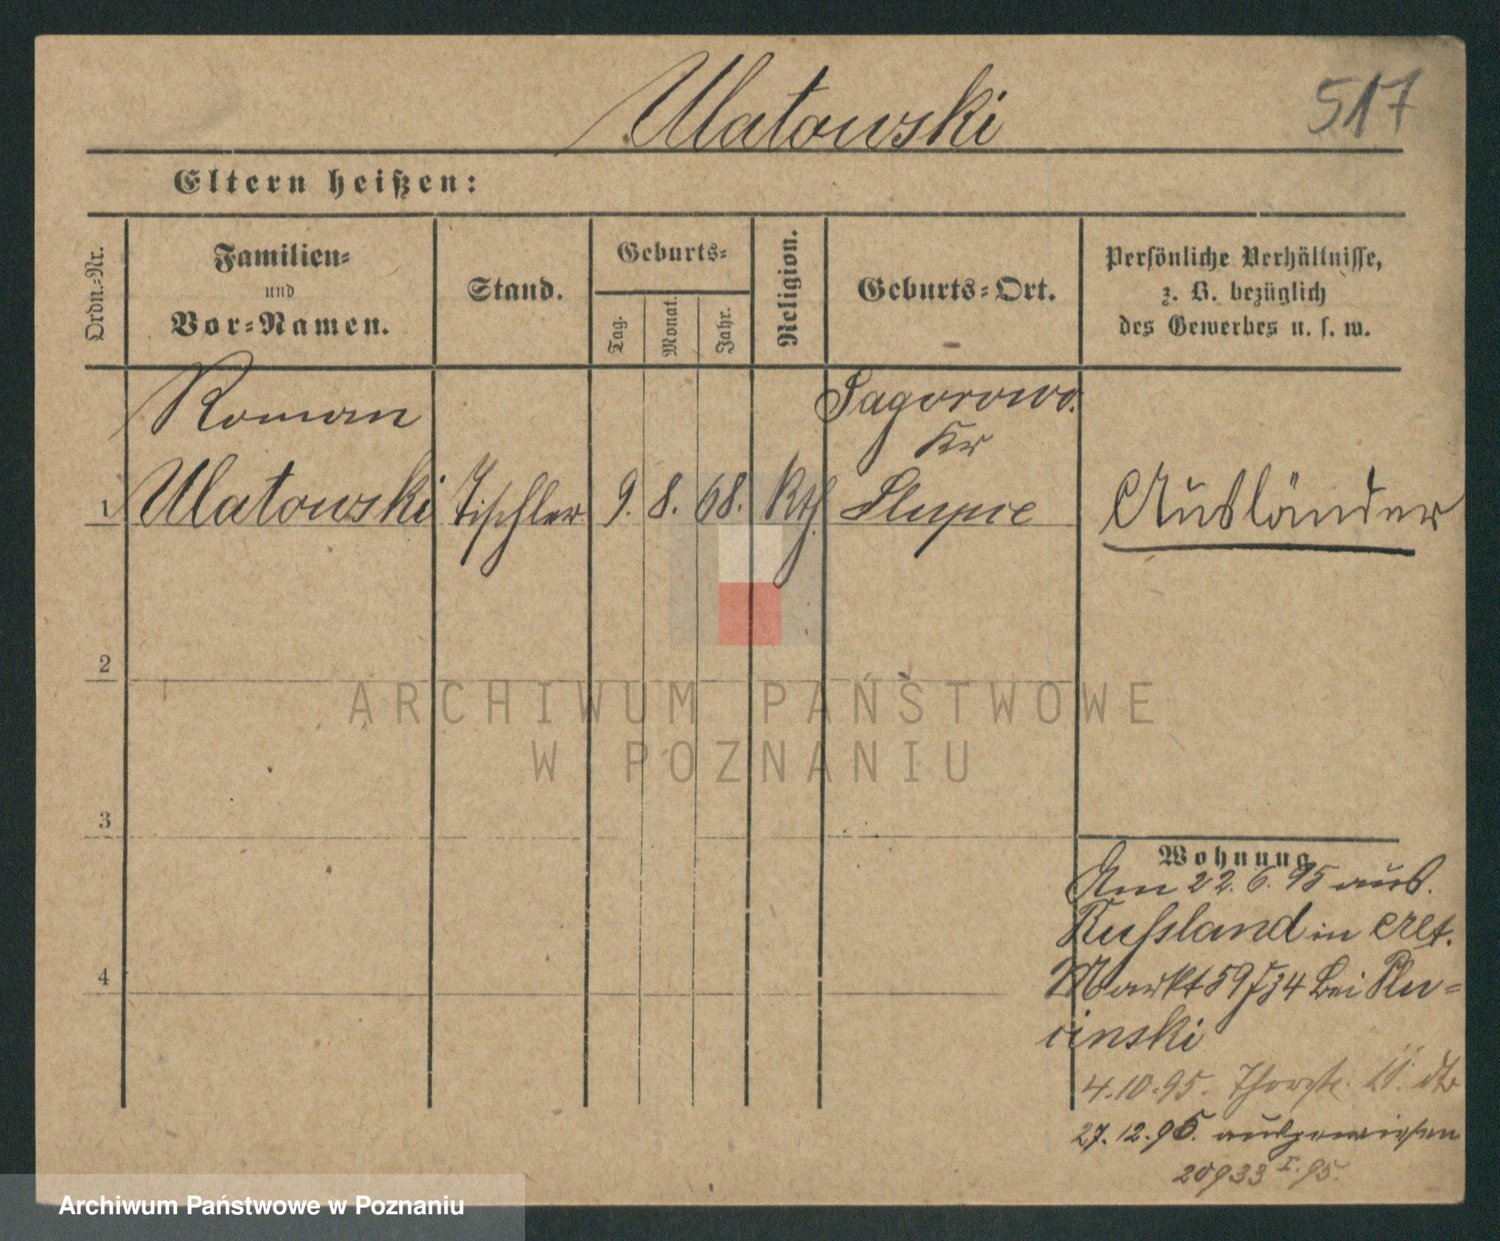 Ulatowski
517
Eltern heißen:
Ordn.-Nr.
Familien-
und
Vor-Namen.
Stand.
Geburts-
Tag.
Monat.
Jahr.
Religion.
Geburts-Ort.
Persönliche Verhältnisse,
z. B. bezüglich
des Gewerbes u. s. w.
Roman
Sagorowo.
Kr
1
Ulatowski
Tischler
9.
8.
68.
Kth.
Slupce
Ausländer
2
ARCHIWUM PAŃSTWOWE
W POZNANIU
3
Wohnung
Am 22. 6. 95 aus.
Russland in
4
Markt 59 34 bei Plu-
cinski
4. 10. 95.
27. 12. 95. ausgewiesen
20933 I. 95.
Archiwum Państwowe w Poznaniu